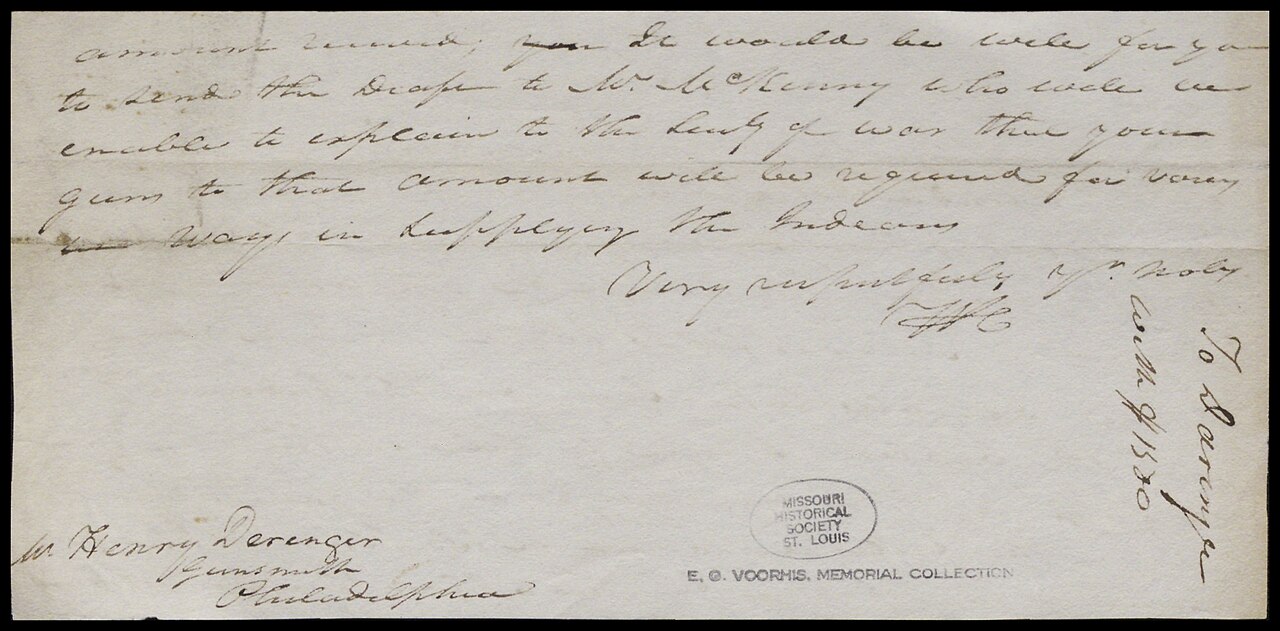 amount received; you It would be well for you
to send the Draft to Mr. McKenny who will be
enable to explain to the Secty of war that your
guns to that amount will be required for
ways in supplying the Indians
Very respectfully yr.
WC
To Daringer
with $1500
Mr. Henry Derenger
Gunsmith
Philadelphia
MISSOURI
HISTORICAL
SOCIETY
ST. LOUIS
E. G. VOORHIS, MEMORIAL COLLECTION